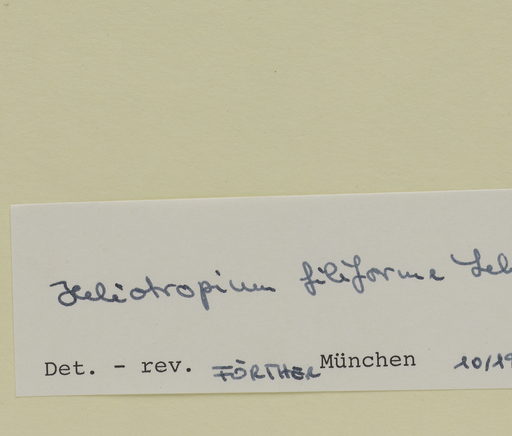 Heliotropium filiforme Leh
Det. - rev. FÖRTHER München 10/19